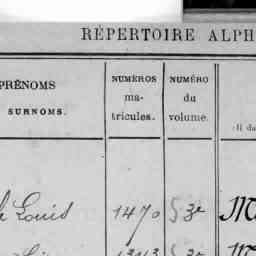 RÉPERTOIRE ALPH
PRÉNOMS
SURNOMS.
NUMÉROS
ma-
tricules.
NUMÉRO
du
volume.
Louis 1470 S 3e M